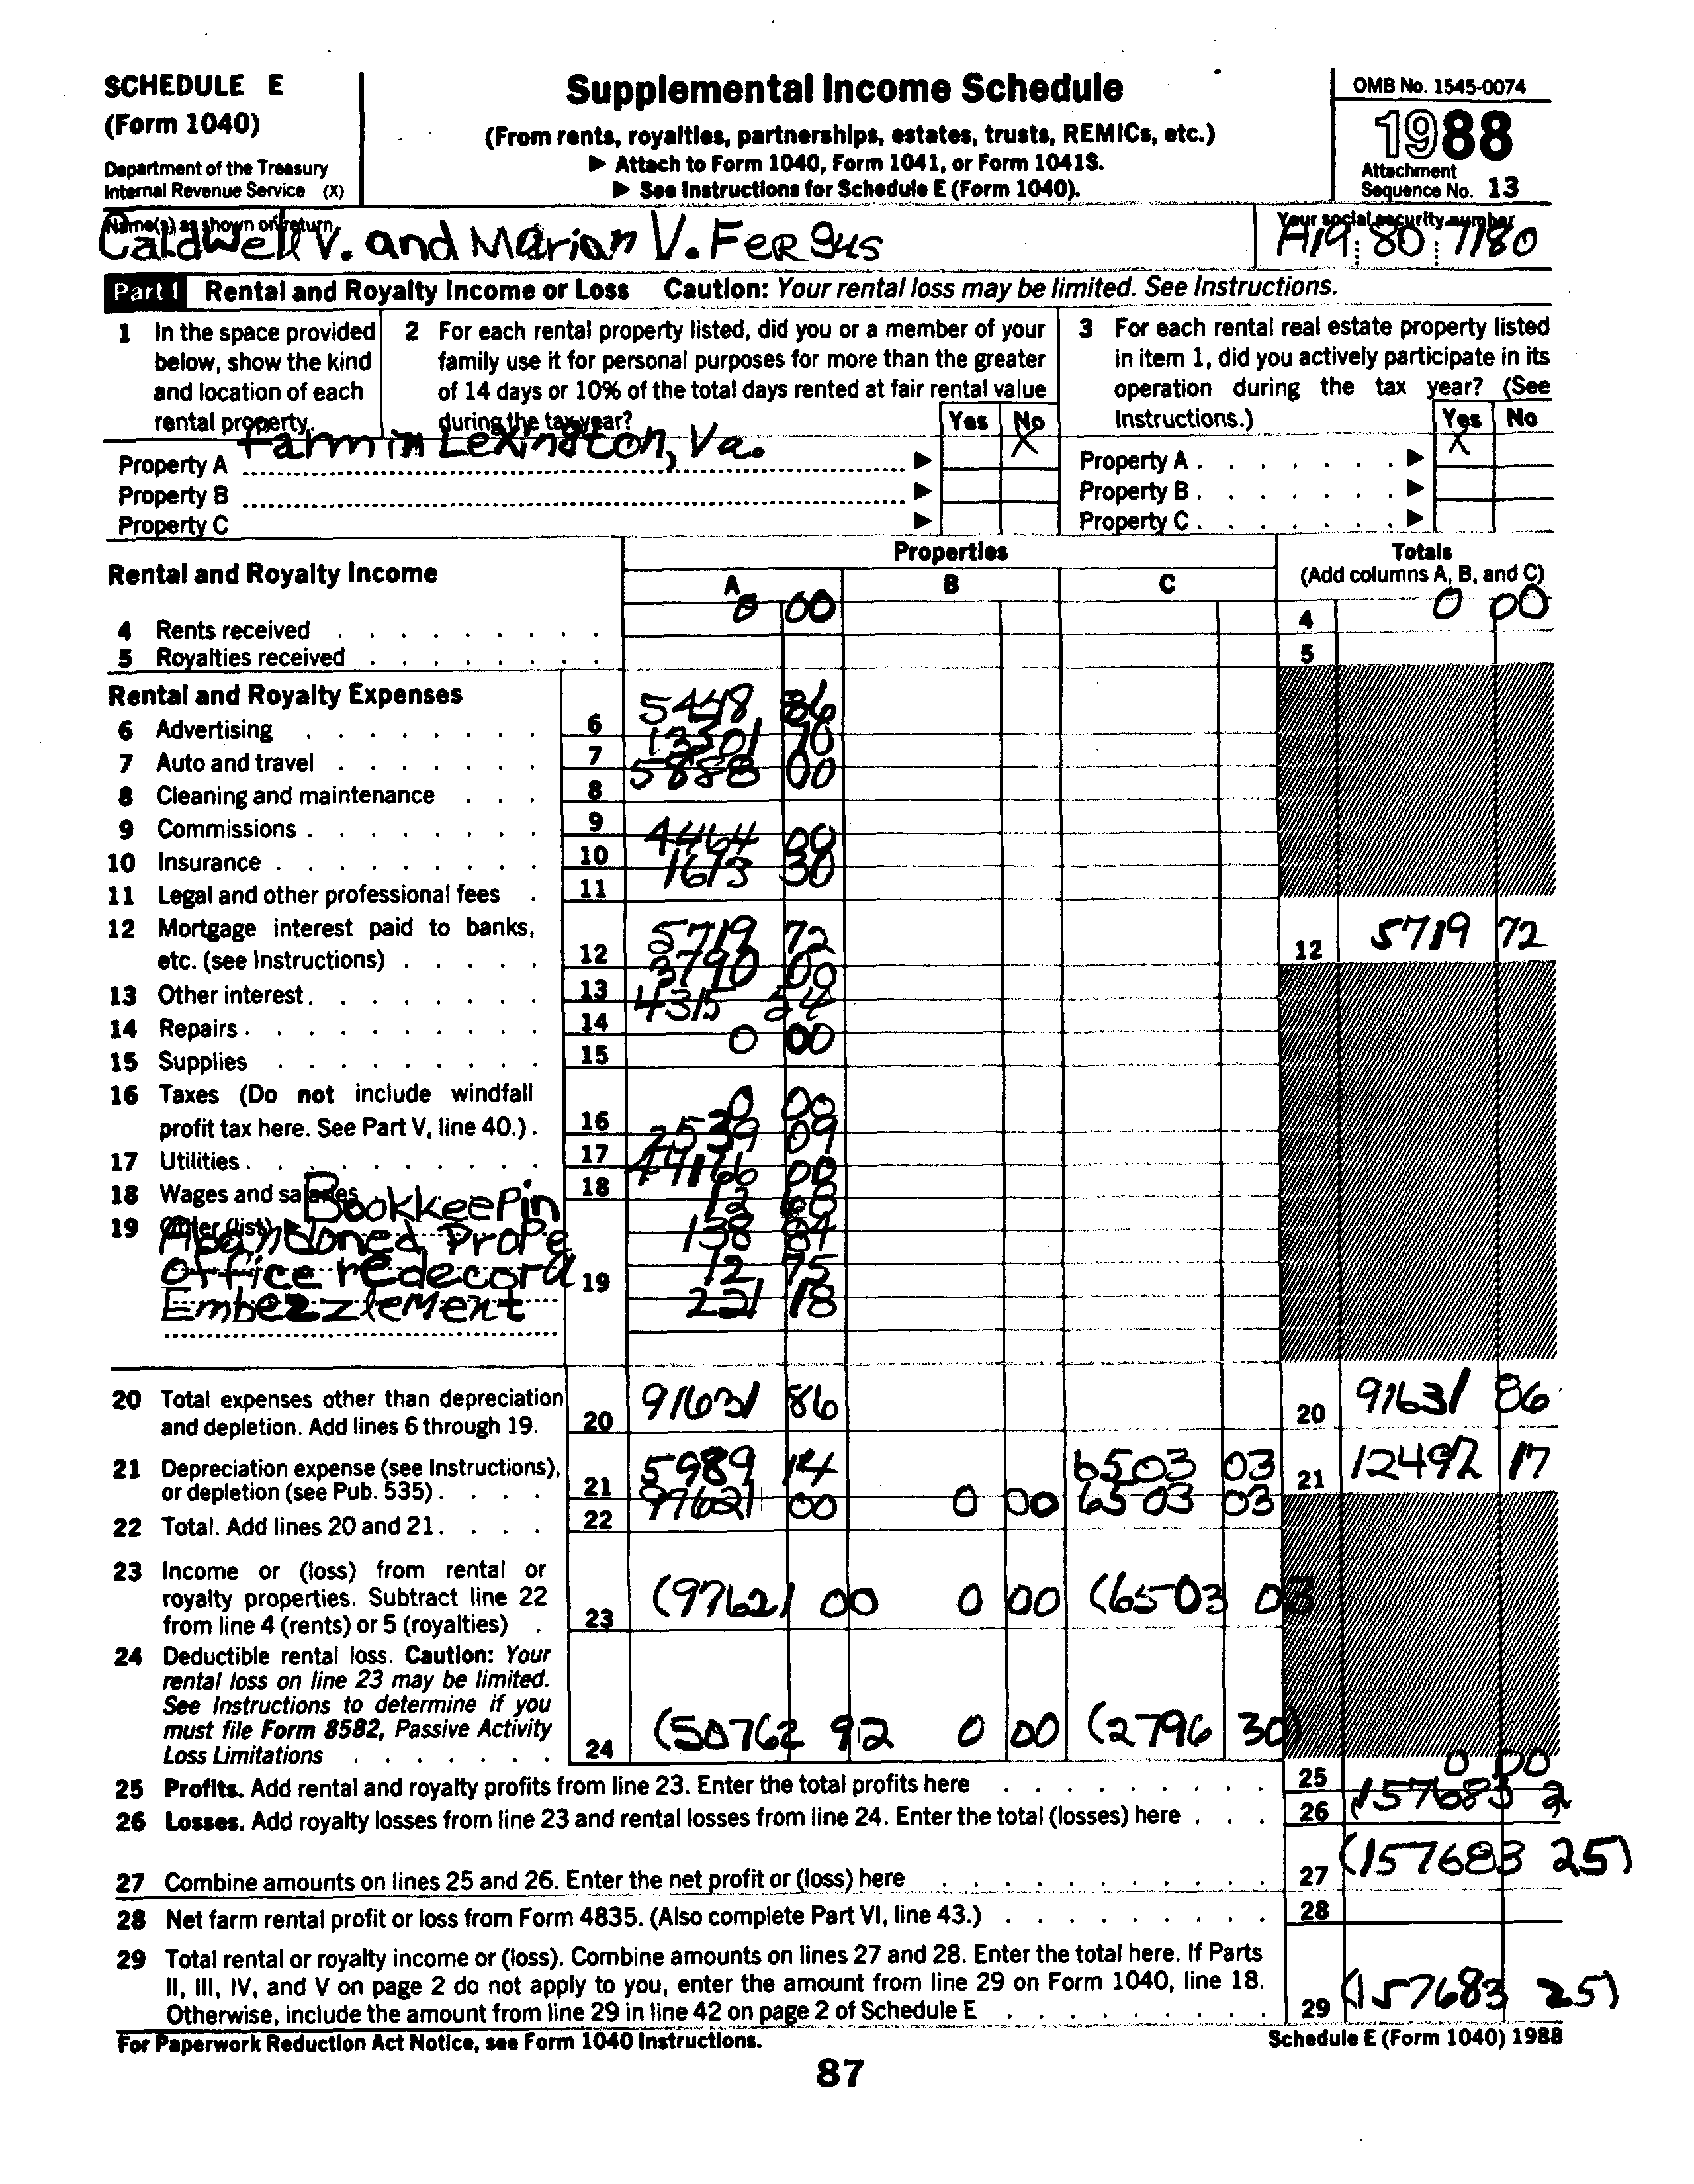 SCHEDULE E
(Form 1040)
Department of the Treasury
Internal Revenue Service (X)
Supplemental Income Schedule
(From rents, royalties, partnerships, estates, trusts, REMICs, etc.)
▶ Attach to Form 1040, Form 1041, or Form 1041S.
▶ See Instructions for Schedule E (Form 1040).
OMB No. 1545-0074
1988
Attachment
Sequence No. 13
Name(s) as shown on return
Caldwell V. and Marian V. Fergus
Your social security number
A19 80 7180
Part I Rental and Royalty Income or Loss Caution: Your rental loss may be limited. See Instructions.
1 In the space provided
below, show the kind
and location of each
rental property.
2 For each rental property listed, did you or a member of your
family use it for personal purposes for more than the greater
of 14 days or 10% of the total days rented at fair rental value
during the tax year?
Yes No
3 For each rental real estate property listed
in item 1, did you actively participate in its
operation during the tax year? (See
Instructions.)
Yes No
Property A Farm in Lexington, Va. ▶ X
Property B ▶
Property C ▶
Property A ▶ X
Property B ▶
Property C ▶
Rental and Royalty Income
Properties
A B C
Totals
(Add columns A, B, and C)
4 Rents received 0 00 4 0 00
5 Royalties received 5
Rental and Royalty Expenses
6 Advertising 6 5448 86
7 Auto and travel 7 13301 70
8 Cleaning and maintenance 8 5888 00
9 Commissions 9
10 Insurance 10 4464 00
11 Legal and other professional fees 11 1613 30
12 Mortgage interest paid to banks,
etc. (see Instructions) 12 5719 72 12 5719 72
13 Other interest 13 3790 00
14 Repairs 14 4315
15 Supplies 15 0 00
16 Taxes (Do not include windfall
profit tax here. See Part V, line 40.) 16 0 00
17 Utilities 17 2539 09
18 Wages and salaries 18 44166 00
19 Other (list) ▶ Bookkeepin 12
Abandoned Prope 138 84
office redecora 19 12 75
Embezzlement 221 18
20 Total expenses other than depreciation
and depletion. Add lines 6 through 19. 20 91631 86 20 91631 86
21 Depreciation expense (see Instructions),
or depletion (see Pub. 535) 21 5989 14 6503 03 21 12492 17
22 Total. Add lines 20 and 21 22 97621 00 0 00 6503 03
23 Income or (loss) from rental or
royalty properties. Subtract line 22
from line 4 (rents) or 5 (royalties) 23 (97621 00 0 00 (6503 03
24 Deductible rental loss. Caution: Your
rental loss on line 23 may be limited.
See Instructions to determine if you
must file Form 8582, Passive Activity
Loss Limitations 24 (50762 92 0 00 (2796 30)
25 Profits. Add rental and royalty profits from line 23. Enter the total profits here 25 0 00
26 Losses. Add royalty losses from line 23 and rental losses from line 24. Enter the total (losses) here 26 (157683 2
27 Combine amounts on lines 25 and 26. Enter the net profit or (loss) here 27 (157683 25)
28 Net farm rental profit or loss from Form 4835. (Also complete Part VI, line 43.) 28
29 Total rental or royalty income or (loss). Combine amounts on lines 27 and 28. Enter the total here. If Parts
II, III, IV, and V on page 2 do not apply to you, enter the amount from line 29 on Form 1040, line 18.
Otherwise, include the amount from line 29 in line 42 on page 2 of Schedule E 29 (157683 25)
For Paperwork Reduction Act Notice, see Form 1040 Instructions.
Schedule E (Form 1040) 1988
87